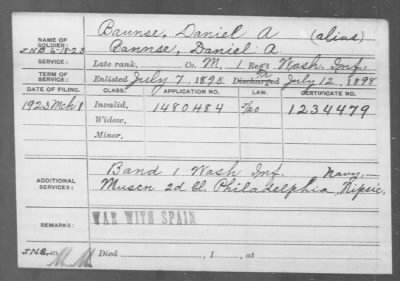 NAME OF SOLDIER: Baunse, Daniel A (alias)
J.N.B. 6-18-23 Bannse, Daniel A
SERVICE: Late rank, Co. M, 1 Reg't Wash. Inf.
TERM OF SERVICE: Enlisted July 7, 1898 Discharged To July 12, 1898
DATE OF FILING. CLASS. APPLICATION NO. LAW. CERTIFICATE NO.
1923 Mch 1 Invalid, 1480484 1234479
Widow,
Minor,
ADDITIONAL SERVICES: Band 1 Wash Inf. Navy.
Muscn 2d Cl. Philadelphia, Nipsic.
REMARKS: WAR WITH SPAIN
J.N.B. M.M. Died , 1 , at